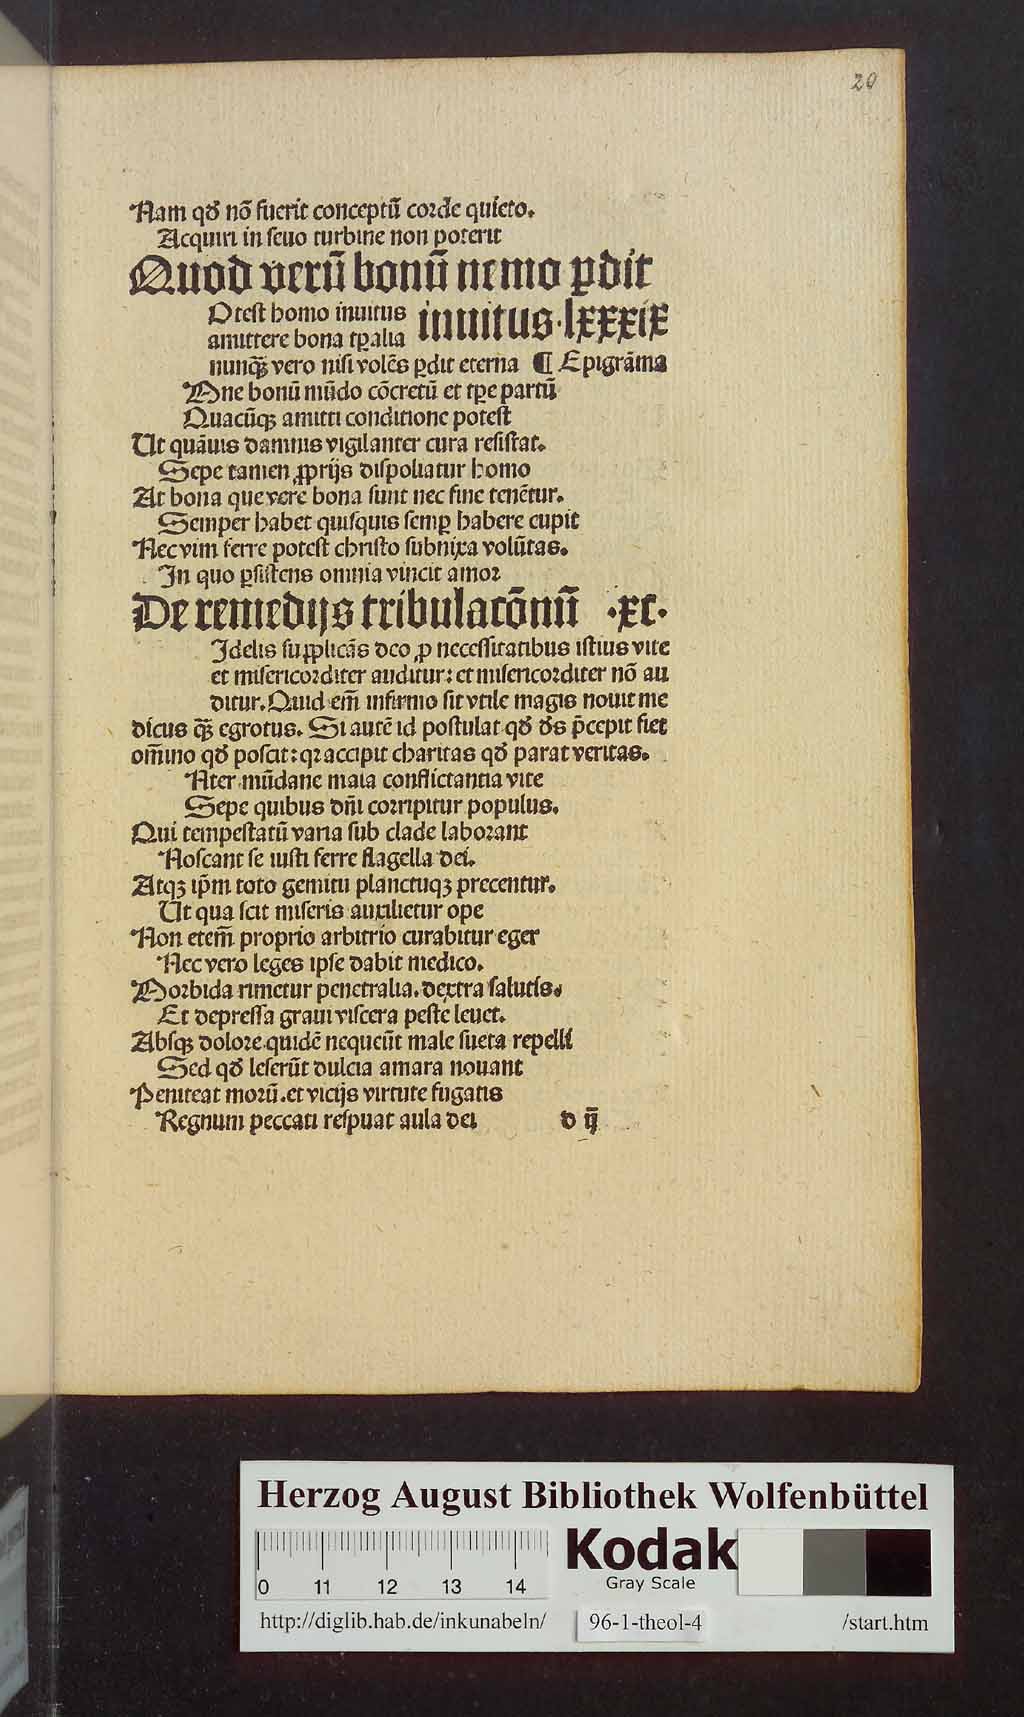 20
Nam qđ nõ fuerit conceptũ corde quieto.
Acquiri in seuo turbine non poterit
Quod verũ bonũ nemo ꝑdit
inuitus·lxxxix
Otest homo inuitus
amittere bona tꝑalia
nunꝙ̃ vero nisi volẽs ꝑdit eterna ¶ Epigrãma
Mne bonũ mũdo cõcretũ et tꝑe partũ
Quacũqꝫ amitti conditione potest
Ut quãuis damnis vigilanter cura resistat.
Sepe tamen ꝓprijs dispoliatur homo
At bona que vere bona sunt nec fine tenẽtur.
Semper habet quisquis semꝑ habere cupit
Nec vim ferre potest christo subnixa volũtas.
In quo ꝑsistens omnia vincit amor
De remedijs tribulatõnũ ·xc·
Idelis supplicãs deo ꝓ necessitatibus istius vite
et misericorditer auditur: et misericorditer nõ au
ditur. Quid em̃ infirmo sit vtile magis nouit me
dicus ꝙ̃ egrotus. Si autẽ id postulat qđ ds̃ p̃cepit fiet
om̃ino qđ poscit: qꝛ accipit charitas qđ parat veritas.
Ater mũdane maia conflictantia vite
Sepe quibus dñi corripitur populus.
Qui tempestatũ varia sub clade laborant
Noscant se iusti ferre flagella dei.
Atqꝫ ip̃m toto gemitu planctuqꝫ precentur.
Ut qua scit miseris auxilietur ope
Non etem̃ proprio arbitrio curabitur eger
Nec vero leges ipse dabit medico.
Morbida rimetur penetralia. dextra salutis.
Et depressa graui viscera peste leuet.
Absqꝫ dolore quidẽ nequeũt male sueta repelli
Sed qđ leserũt dulcia amara nouant
Peniteat morũ. et vicijs virtute fugatis
Regnum peccati respuat aula dei d ij
Herzog August Bibliothek Wolfenbüttel
0 11 12 13 14
Kodak
Gray Scale
http://diglib.hab.de/inkunabeln/ 96-1-theol-4 /start.htm